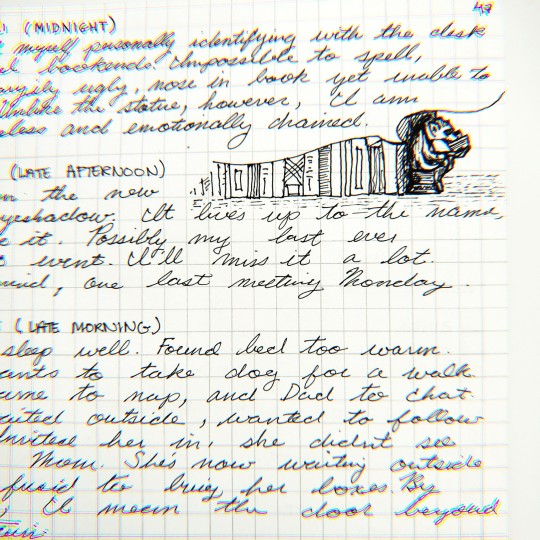 47
(MIDNIGHT)
myself personally identifying with the desk
backends. Impossible to spell,
ugly, nose in book yet unable to
Unlike the statue, however, I am
less and emotionally drained.
(LATE AFTERNOON)
the new
eyeshadow. It lives up to the name,
it. Possibly my last ever
event. I'll miss it a lot.
mind, one last meeting Monday.
(LATE MORNING)
sleep well. Found bed too warm.
ants to take dog for a walk
ame to nap, and Dad to chat.
aited outside, wanted to follow
Invited her in, she didn't see
Mom. She's now waiting outside
to bring her boxes. By
, I mean the door beyond